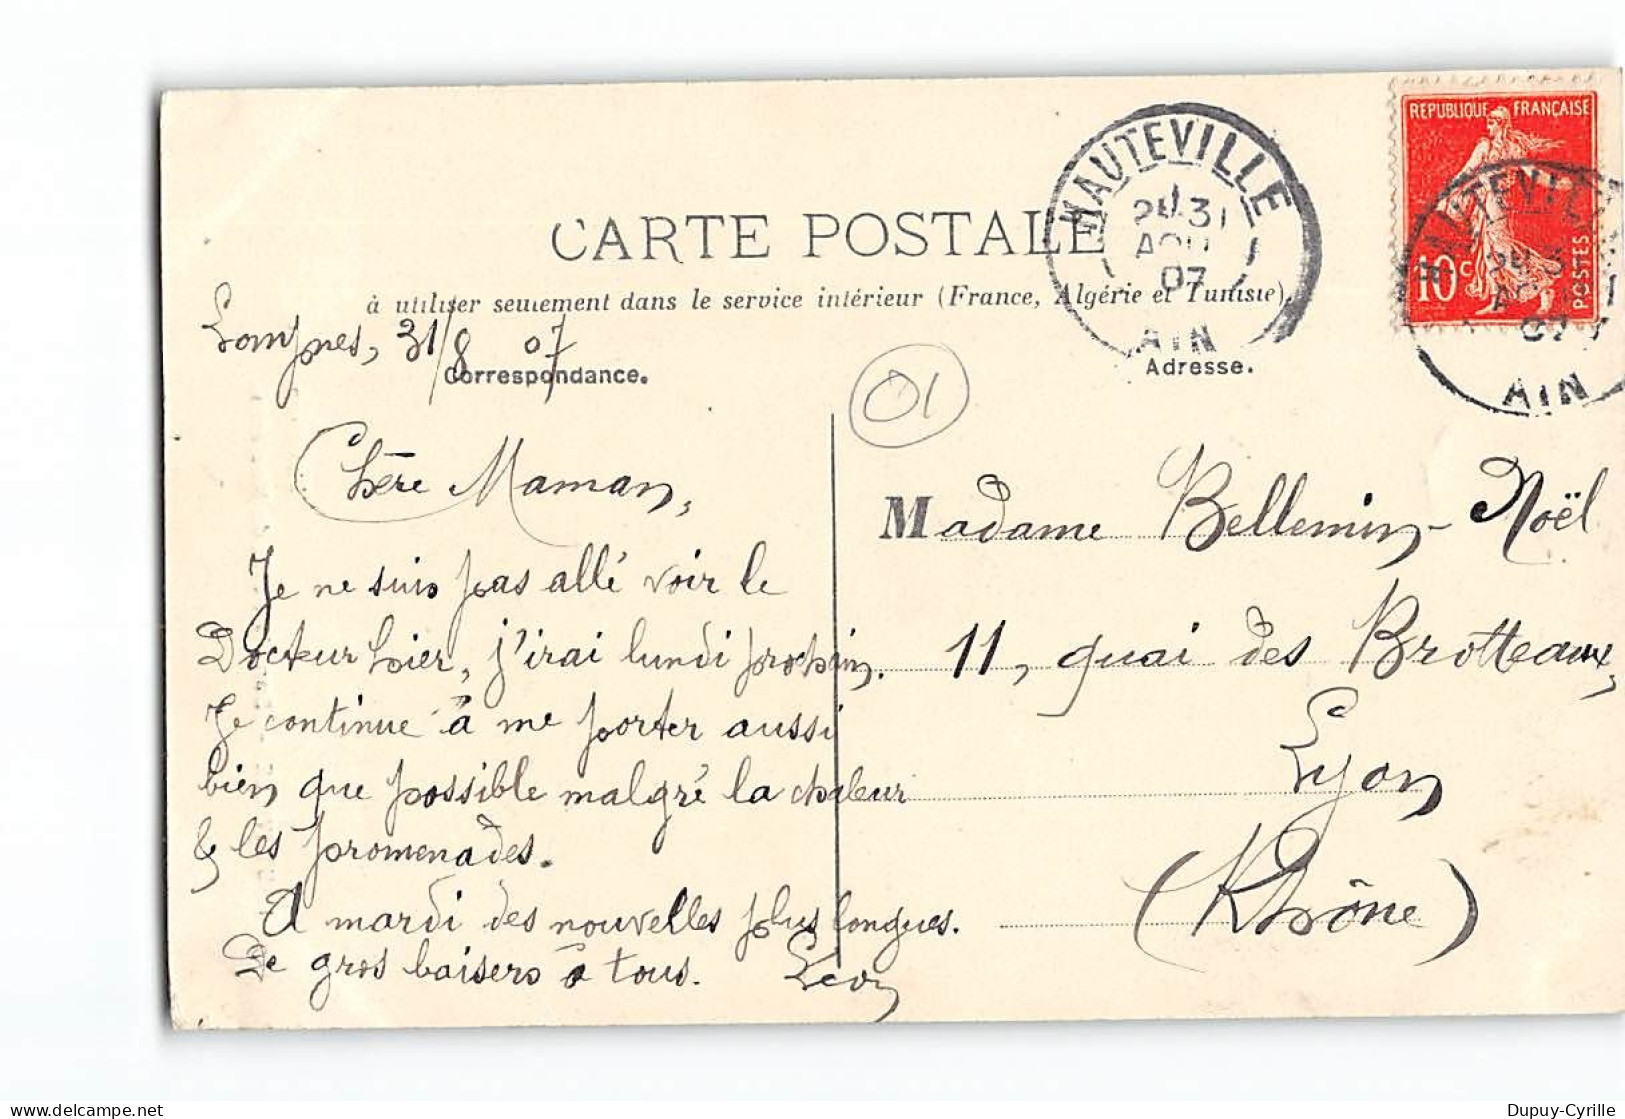 CARTE POSTALE
à utiliser seulement dans le service intérieur (France, Algérie et Tunisie)
HAUTEVILLE
31
AOU
07
AIN
REPUBLIQUE FRANÇAISE
10c
POSTES
HAUTEVILLE
07
AIN
Lompnes, 31/8 07
Correspondance.
Adresse.
01
Chère Maman,
Je ne suis pas allé voir le
Docteur hier, j'irai lundi prochain.
Je continue à me porter aussi
bien que possible malgré la chaleur
& les promenades.
A mardi des nouvelles plus longues.
De gros baisers à tous. Léon
Madame Bellemin-Noël
11, quai des Brotteaux,
Lyon
(Rhône)
Dupuy-Cyrille